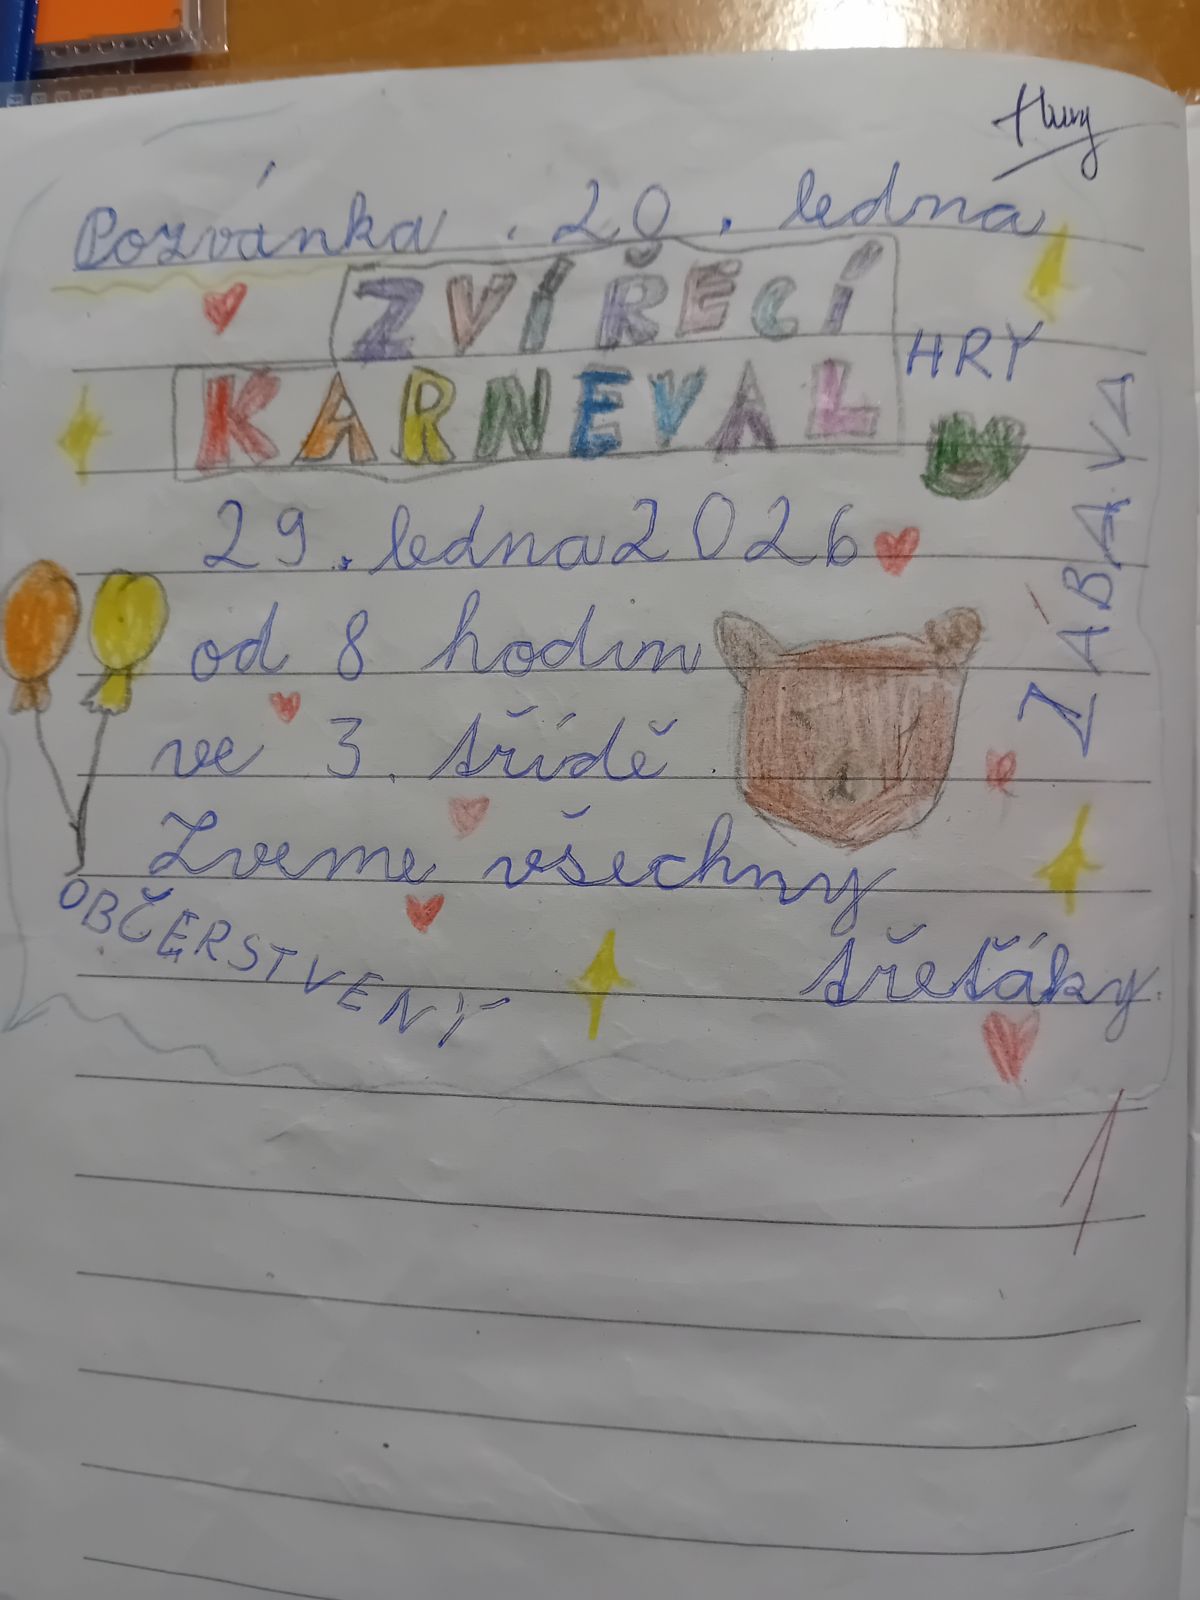 Pozvánka . 20 . ledna
ZVÍŘECÍ
KARNEVAL
HRY
ZÁBAVA
29. ledna 2026
od 8 hodin
ve 3. třídě.
Zveme všechny
třeťáky.
OBČERSTVENY
1